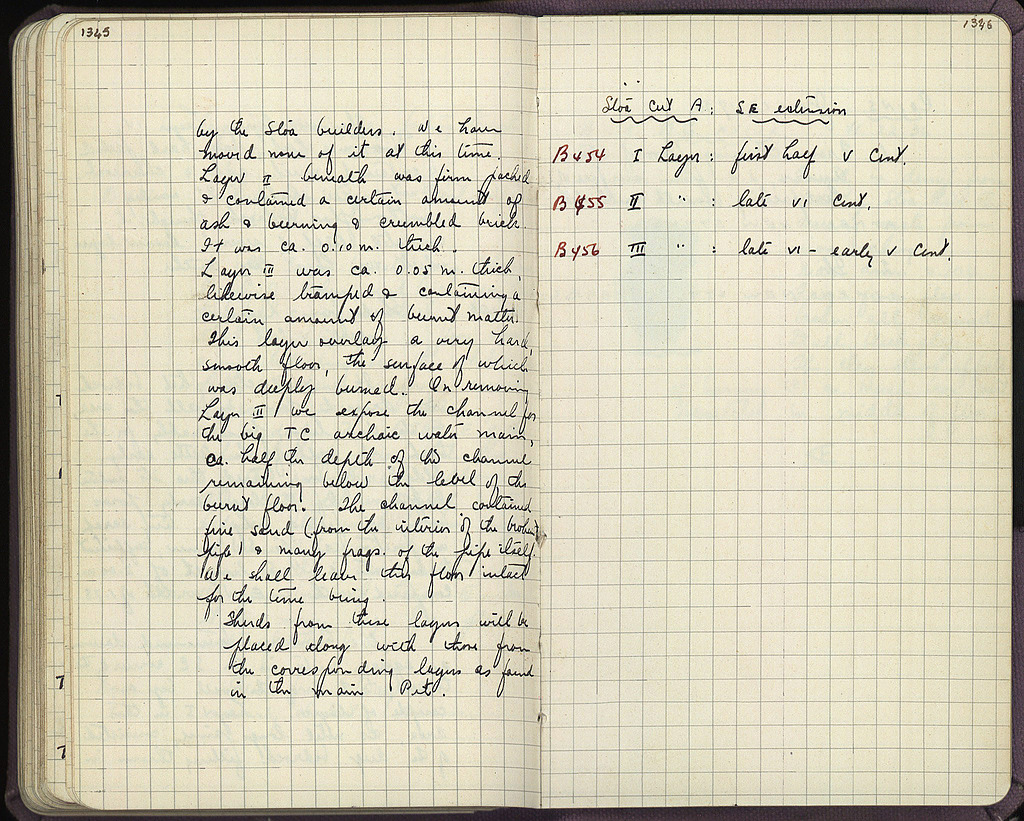 1345
by the Stoa builders. We have
moved none of it at this time.
Layer II beneath was firm packed
& contained a certain amount of
ash & burning & crumbled brick.
It was ca. 0.10 m. thick.
Layer III was ca. 0.05 m. thick,
likewise tramped & containing a
certain amount of burnt matter.
This layer overlay a very hard,
smooth floor, the surface of which
was deeply burned. On removing
Layer III we expose the channel for
the big TC archaic water main,
ca. half the depth of the channel
remaining below the level of the
burnt floor. The channel contained
fine sand (from the interior of the broken
pipe) & many frags. of the pipe itself.
We shall leave this floor intact
for the time being.
Sherds from these layers will be
placed along with those from
the corresponding layers as found
in the main Pit.
1346
Stoa Cut A: SE extension
B 454 I Layer: first half V Cent.
B 455 II " : late VI Cent.
B 456 III " : late VI - early V Cent.